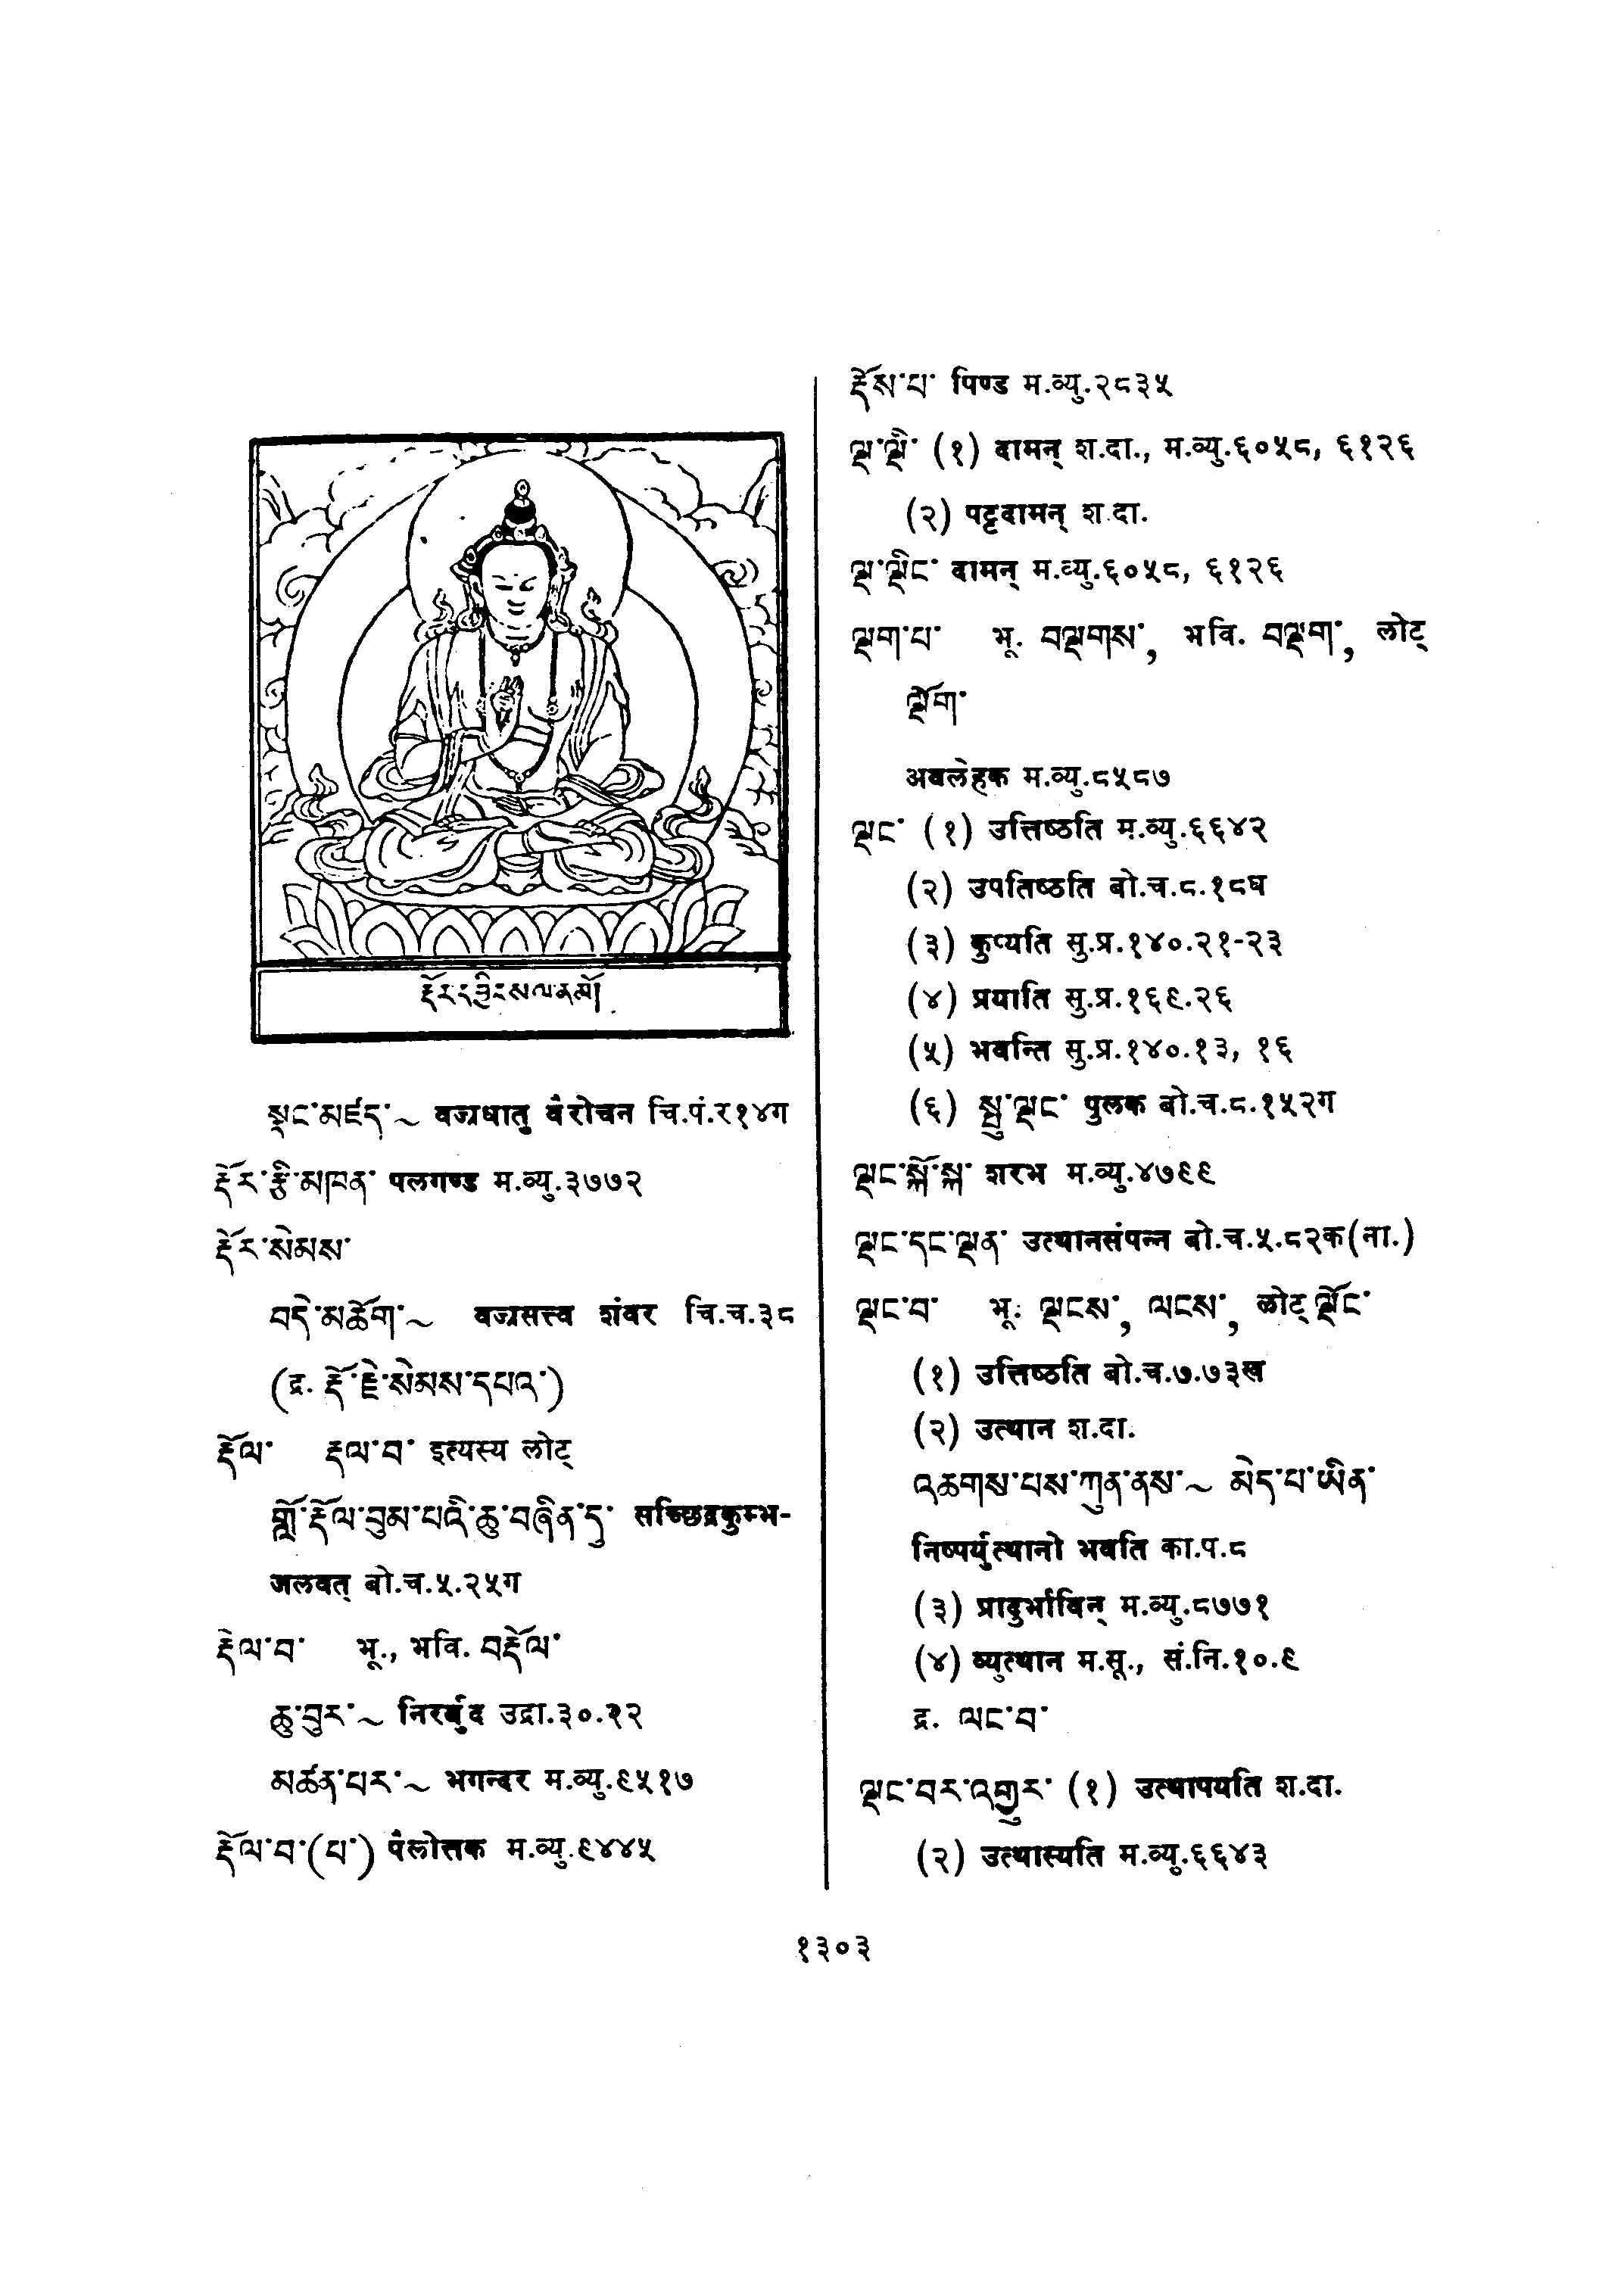 རྡོར་དབྱིངས་ལ་ན་མོ།
སྣང་མཛད་~ वज्रधातु वैरोचन चि.पं.र१४ग
རྡོར་རྩི་མཁན་ पलगण्ड म.व्यु.३७७२
རྡོར་སེམས་
བདེ་མཆོག་~ वज्रसत्त्व शंवर चि.च.३८
(द्र. རྡོ་རྗེ་སེམས་དཔའ་)
རྡོལ་ རྡལ་བ་ इत्यस्य लोट्
གློ་རྡོལ་བུམ་པའི་ཆུ་བཞིན་དུ་ सच्छिद्रकुम्भ-
जलवत् बो.च.५.२५ग
རྡེལ་བ་ भू., भवि. བརྡོལ་
ཆུ་བུར་~ निरर्बुद उद्रा.३०.२२
མཚན་པར་~ भगन्दर म.व्यु.९५१७
རྡོལ་བ་(པ་) पैलोत्तक म.व्यु.९४४५
རྡོས་པ་ पिण्ड म.व्यु.२८३५
ལྡ་ལྡི་ (१) दामन् श.दा., म.व्यु.६०५८, ६१२६
(२) पट्टदामन् श.दा.
ལྡ་ལྡིང་ दामन् म.व्यु.६०५८, ६१२६
ལྡག་པ་ भू. བལྡགས་, भवि. བལྡག་, लोट्
ལྡོག་
अवलेहक म.व्यु.८५८७
ལྡང་ (१) उत्तिष्ठति म.व्यु.६६४२
(२) उपतिष्ठति बो.च.८.१८घ
(३) कुप्यति सु.प्र.१४०.२१-२३
(४) प्रयाति सु.प्र.१६९.२६
(५) भवन्ति सु.प्र.१४०.१३, १६
(६) སྤུ་ལྡང་ पुलक बो.च.८.१५२ग
ལྡང་སྐོ་སྐ་ शरभ म.व्यु.४७९९
ལྡང་དང་ལྡན་ उत्थानसंपन्न बो.च.५.८२क(ना.)
ལྡང་བ་ भू. ལྡངས་, ལངས་, लोट् ལྡོང་
(१) उत्तिष्ठति बो.च.७.७३ख
(२) उत्थान श.दा.
འཆགས་པས་ཀུན་ནས་~ མེད་པ་ཡིན་
निष्पर्युत्थानो भवति का.प.८
(३) प्रादुर्भाविन् म.व्यु.८७७१
(४) व्युत्थान म.सू., सं.नि.१०.९
द्र. ལང་བ་
ལྡང་བར་འགྱུར་ (१) उत्थापयति श.दा.
(२) उत्थास्यति म.व्यु.६६४३
१३०३